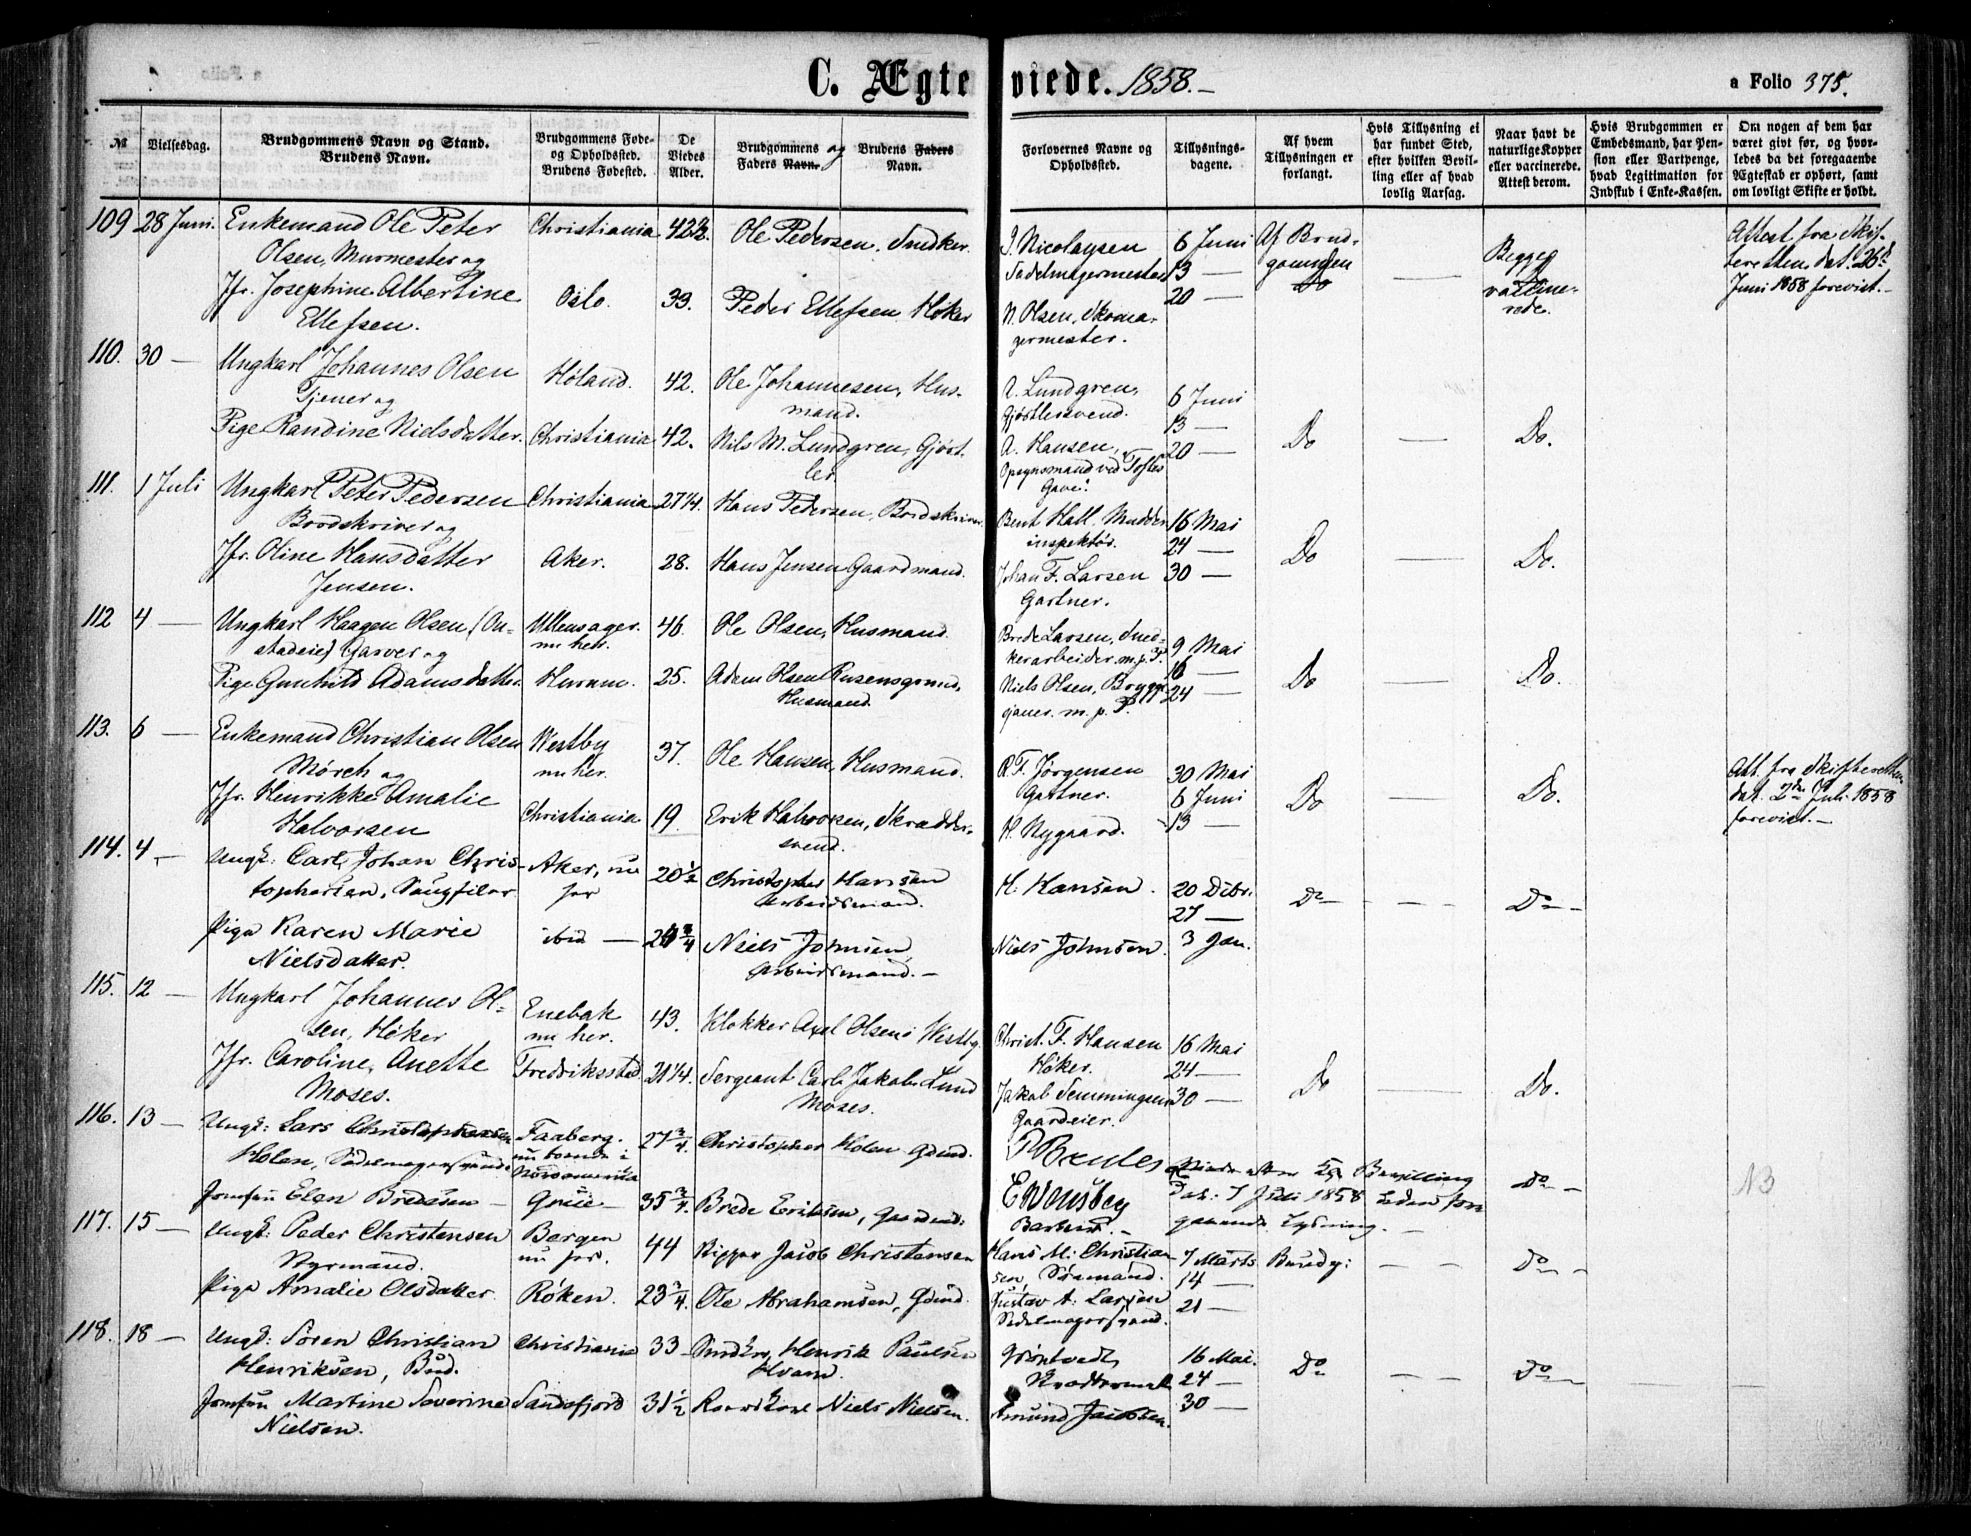 C. Ægteviede. 1858.-
a Folio 375.
№
Vielsesdag.
Brudgommens Navn og Stand.
Brudens Navn.
Brudgommens Føde-
og Opholdssted.
Brudens Fødested.
De
Viedes
Alder.
Brudgommens og Brudens Faders
Faders Navn. Navn.
Forlovernes Navne og
Opholdssted.
Tillysnings-
dagene.
Af hvem
Tillysningen er
forlangt.
Hvis Tillysning ei
har fundet Sted,
efter hvilken Bevil-
ling eller af hvad
lovlig Aarsag.
Naar havt de
naturlige Kopper
eller vaccinerede.
Attest derom.
Hvis Brudgommen er
Embedsmand, har Pen-
sion eller Vartpenge,
hvad Legitimation for
Indskud i Enke-Kassen.
Om nogen af dem har
været givt før, og hvor-
ledes da det foregaaende
Ægteskab er ophørt, samt
om lovligt Skifte er holdt.
109 28 Juni. Enkemand Ole Peter
Olsen, Murmester og
Jfr. Josephine Albertine
Ellefsen.
Christiania
Oslo.
42½.
33.
Ole Pedersen, Snedker.
Peder Ellefsen Høker
J. Nicolaysen
Sadelmagermester
N. Olsen, Skoma-
germester.
6 Juni
13 —
20 —
Af Brud-
gommen
Do
—
Begge
vaccine-
rede.
Attest fra Skif-
teretten dat. 26d
Juni 1858 forevist.-
110. 30 — Ungkarl Johannes Olsen
Tjener og
Pige Randine Nielsdatter.
Høland.
Christiania
42.
42.
Ole Johannesen, Hus-
mand.
Nils M. Lundgren, Gjørt-
ler
A. Lundgren,
Gjørtlersvend.
A. Hansen,
Opsynsmand ved Toftes
Gave.
6 Juni
13 —
20 —
Do
—
Do.
111. 1 Juli Ungkarl Peter Pedersen
Bordskriver og
Jfr. Oline Hansdatter
Jensen.
Christiania
Aker.
27¼.
28.
Hans Pedersen, Bordskriver
Hans Jensen Gaardmand.
Bent Hall, Mudder-
inspektør.
Johan F. Larsen
Gartner.
16 Mai
24 —
30 —
Do
—
Do.
112 4 — Ungkarl Haagen Olsen, (On-
stadeie) Garver og
Pige Gunhild Adamsdatter.
Ullensager.
nu her.
Hurum.
46.
25.
Ole Olsen, Husmand.
Adam Olsen Rusensgrund,
Husmand.
Brede Larsen, Sned-
kerarbeider m.p.P.
Niels Olsen, Brygge-
sjauer. m. p. P.
9 Mai
16 —
24 —
Do
—
Do.
113. 6 — Enkemand Christian Olsen
Mørch og
Jfr. Henrikke Amalie
Halvorsen
Westby
nu her.
Christiania
37.
19.
Ole Hansen, Husmand.
Erik Halvorsen, Skrædder-
svend.
R. F. Jørgensen
Gartner.
H. Nygaard.
30 Mai
6 Juni
13 —
Do
—
Do.
Att. fra Skifteretten
dat. 2den Juli 1858
forevist.-
114. 4 — Ungk: Carl Johan Chris-
tophersen, Saugfiler
Pige Karen Marie
Nielsdatter.
Aker, nu
her
ibid —
20½
20¾
Christopher Hansen
Arbeidsmand.
Niels Johnsen,
Arbeidsmand.-
H. Hansen.
Niels Johnsen.
20 Dcbr.
27 —
3 Jan.
Do
- -
Do -
115. 12 — Ungkarl Johannes Ol-
sen, Høker
Jfr. Caroline, Anette
Moses.
Enebak
nu her.
Fredriksstad
43.
21¼.
Klokker Axel Olsen i Westby.
Sergeant Carl Jakob Lund
Moses.
Christ. F. Hansen
Høker.
Jakob Semmingsen
Gaardeier.
16 Mai
24 —
30 —
Do
—
Do.
116. 13 — Ungk: Lars Christophersen
Holen, Sadelmagersvend
Jomfru Elen Bredesen —
Faaberg.
nu boende i
Nordamerika
Grue —
27¾.
35¾.
Christopher Holen Gdmd.
Brede Eriksen, Gaardmd:
Barber.-
Viede efter Kgl Bevilling
Dat: 7 Juli 1858 uden fore-
gaaende Lysning. —
Do -
NB
117. 15 — Ungk: Peder Christensen
Styrmand.
Pige Amalie Olsdatter.
Bergen
nu her.
Røken.
44
23¾.
Skipper Jacob Christensen
Ole Abrahamsen, Gdmd.
Hans M: Christian
sen, Sømand.
Gustav A: Larsen
Sadelmagersvend.
7 Marts
14 —
21 —
Brudg:
- -
Do -
118. 18 — Ungk: Søren Christian
Henriksen, Bud.
Jomfru Martine Severine
Nielsen.
Christiania
Sandefjord
33
31½
Snedker Henrik Paulsen
Hvam.
Niels Nielsen.
Grøntvedt,
Amund Jacobsen.
16 Mai.
24 —
30 —
Do
- -
Do -